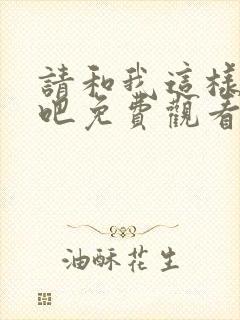 請和我這樣
吧免費觀看
油酥花生